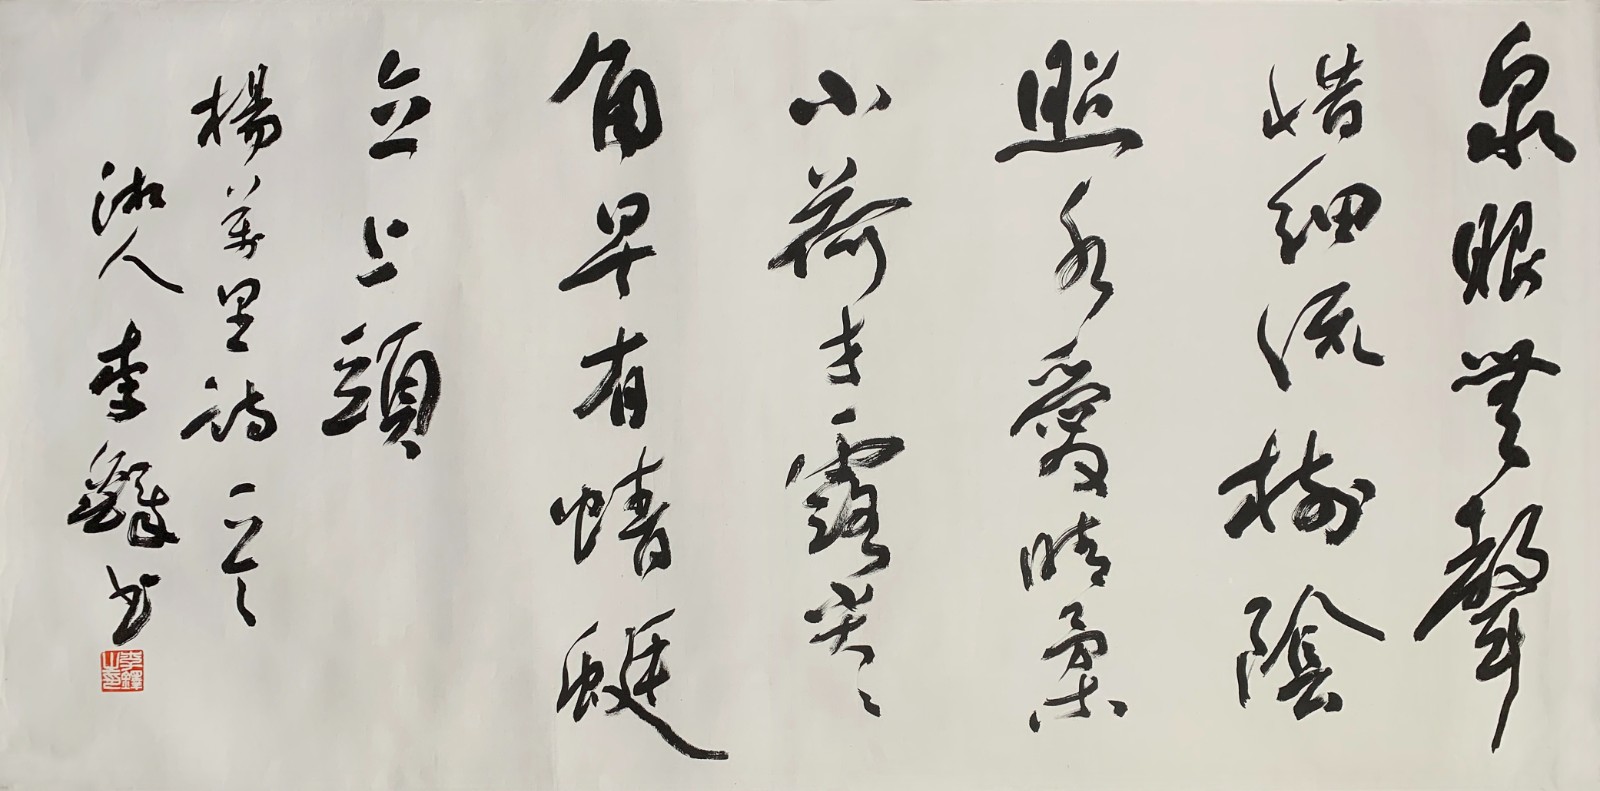 泉眼無聲
惜細流樹陰
照水愛晴柔
小荷才露尖尖
角早有蜻蜓
立上頭
楊萬里詩一首
湘人李鐸書
李鐸之印